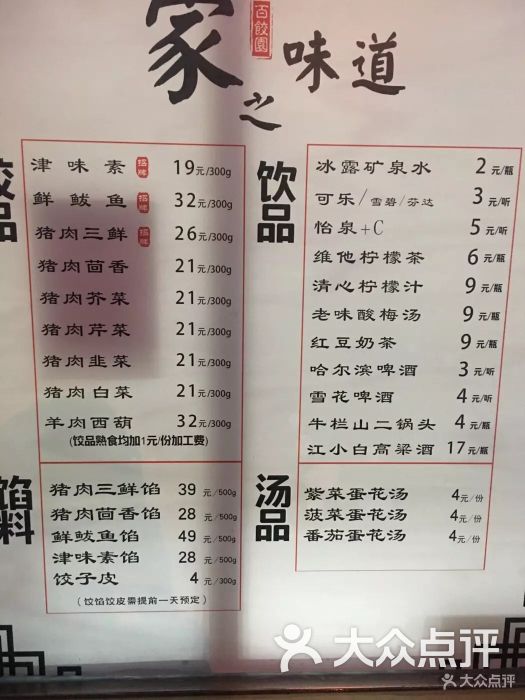 家之味道
百饺园
饺品
津味素 招牌 19元/300g
鲜鲅鱼 招牌 32元/300g
猪肉三鲜 招牌 26元/300g
猪肉茴香 21元/300g
猪肉芥菜 21元/300g
猪肉芹菜 21元/300g
猪肉韭菜 21元/300g
猪肉白菜 21元/300g
羊肉西葫 32元/300g
(饺品熟食均加1元/份加工费)
馅料
猪肉三鲜馅 39元/500g
猪肉茴香馅 28元/500g
鲜鲅鱼馅 49元/500g
津味素馅 28元/500g
饺子皮 4元/300g
(饺馅饺皮需提前一天预定)
饮品
冰露矿泉水 2元/瓶
可乐/雪碧/芬达 3元/听
怡泉+C 5元/听
维他柠檬茶 6元/瓶
清心柠檬汁 9元/瓶
老味酸梅汤 9元/瓶
红豆奶茶 9元/瓶
哈尔滨啤酒 3元/听
雪花啤酒 4元/听
牛栏山二锅头 4元/瓶
江小白高粱酒 17元/瓶
汤品
紫菜蛋花汤 4元/份
菠菜蛋花汤 4元/份
番茄蛋花汤 4元/份
大众点评
大众点评